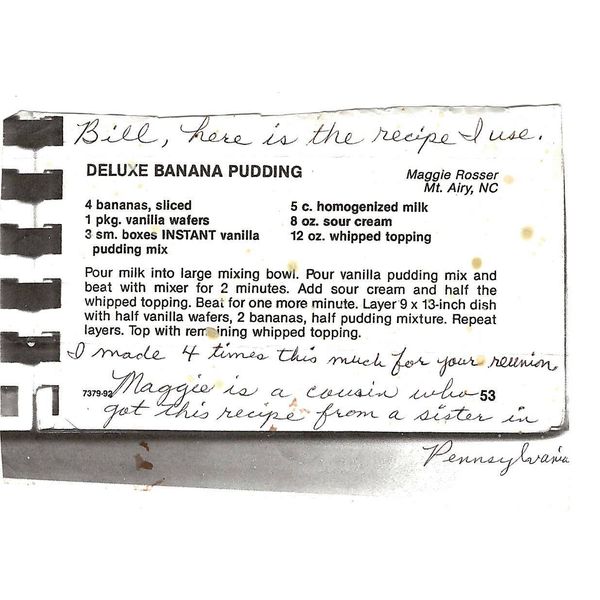 Bill, here is the recipe I use.
DELUXE BANANA PUDDING
Maggie Rosser
Mt. Airy, NC
4 bananas, sliced
1 pkg. vanilla wafers
3 sm. boxes INSTANT vanilla
pudding mix
5 c. homogenized milk
8 oz. sour cream
12 oz. whipped topping
Pour milk into large mixing bowl. Pour vanilla pudding mix and
beat with mixer for 2 minutes. Add sour cream and half the
whipped topping. Beat for one more minute. Layer 9 x 13-inch dish
with half vanilla wafers, 2 bananas, half pudding mixture. Repeat
layers. Top with remaining whipped topping.
I made 4 times this much for your reunion.
7379-92
53
Maggie is a cousin who
got this recipe from a sister in
Pennsylvania